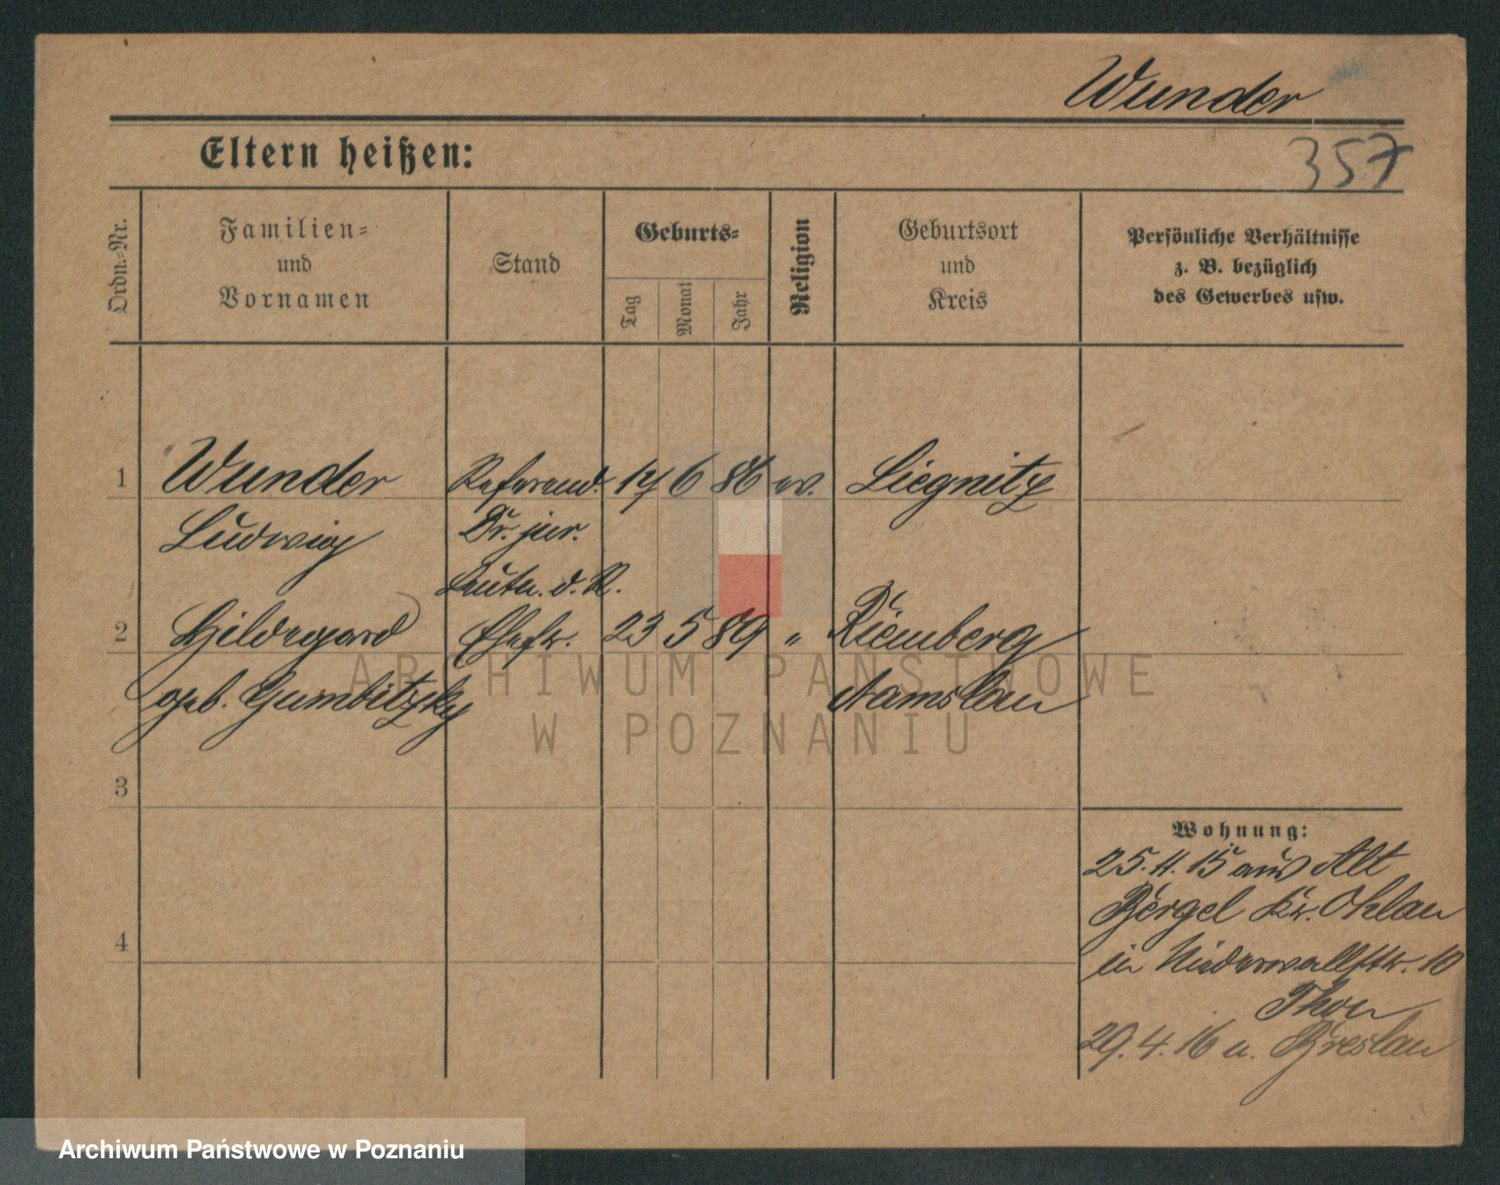 Wunder
Eltern heißen:
357
Ordn.=Nr.
Familien=
und
Vornamen
Stand
Geburts=
Tag
Monat
Jahr
Religion
Geburtsort
und
Kreis
Persönliche Verhältnisse
z. B. bezüglich
des Gewerbes usw.
1 Wunder Referend. 17 6 86 ev. Liegnitz
Ludwig Dr. jur.
Leutn. d. R.
2 Hildegard Ehefr. 23 5 89 " Riemberg
geb. Gumbitzky Namslau
3
4
Wohnung:
25. 11. 15 aus Alt
Bergel Kr. Ohlau
in Niederwallstr. 10
Thon
29. 4. 16 n. Breslau
ARCHIWUM PAŃSTWOWE
W POZNANIU
Archiwum Państwowe w Poznaniu